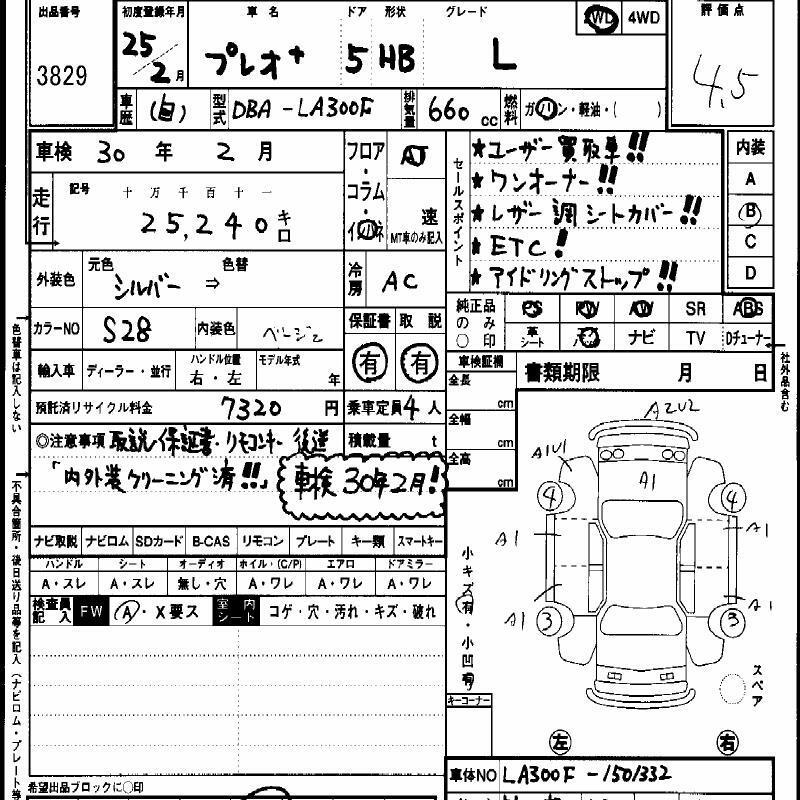 出品番号 初度登録年月 車名 ドア 形状 グレード 2WD 4WD 評価点
3829 25/2月 プレオ+ 5 HB L 4.5
車歴 (自) 型式 DBA-LA300F 排気量 660cc 燃料 ガソリン・軽油・( )
車検 30年 2月
フロア・コラム・インパネ AT 速 MT車のみ記入
走行 記号 十万千百十一
25,240キロ
外装色 元色 シルバー ⇒ 色替
冷房 AC
カラーNO S28 内装色 ベージュ
保証書 取説
有 有
輸入車 ディーラー・並行 ハンドル位置 右・左 モデル年式 年
預託済リサイクル料金 7320円 乗車定員 4人
◎注意事項 取説・保証書・リモコンキー後送 積載量 t
「内外装クリーニング済!!」
車検30年2月!
セールスポイント
★ユーザー買取車!!
★ワンオーナー!!
★レザー調シートカバー!!
★ETC!
★アイドリングストップ!!
内装
A
B
C
D
純正品のみ○印 PS PW AW SR ABS
革シート ナビ TV Dチューナー
車検証欄 書類期限 月 日
全長 cm
全幅 cm
全高 cm
ナビ取説 ナビロム SDカード B-CAS リモコン プレート キー類 スマートキー
ハンドル シート オーディオ ホイル・(C/P) エアロ ドアミラー
A・スレ A・スレ 無し・穴 A・ワレ A・ワレ A・ワレ
検査員記入 FW A・X要ス 室内シート コゲ・穴・汚れ・キズ・破れ
A2U2
A1U1
A1
4 4
A1 A1
A1 A1
3 3
小キズ有・小凹有
スペア
キーコーナー
左 右
車体NO LA300F-1501332
希望出品ブロックに○印
色替車は記入しない
→不具合箇所・後日送り品等を記入(ナビロム・プレート等
社外品含む